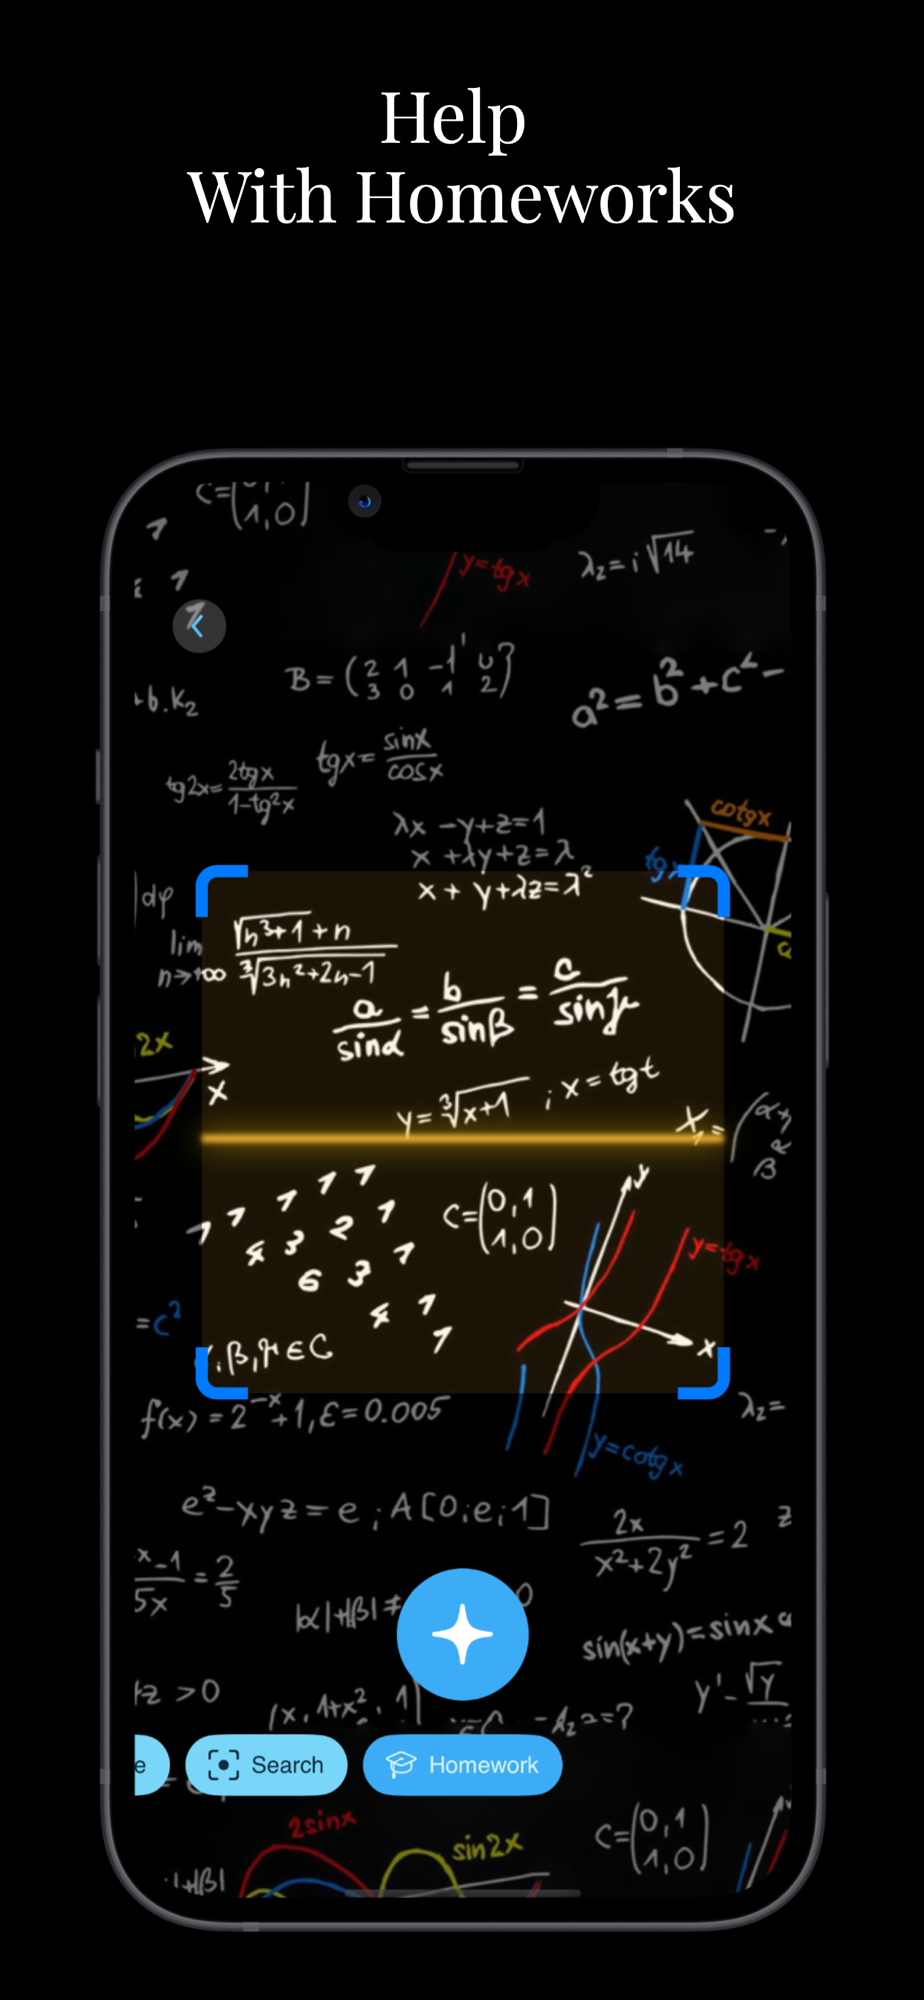 Help
With Homeworks
C=(1,0)
y=tgx
λ₂=i√14
B=(2 1 -1 0
3 0 1 2)
+b.K₂
a²=b²+c²-
tg2x=2tgx/1-tg²x
tgx=sinx/cosx
cotgx
λx -y+z=1
x +λy+z=λ
x + y+λz=λ²
tgx
dφ
lim n→+∞ √n³+1+n/∛3n²+2n-1
a/sinα=b/sinβ=c/sinγ
2x
x
y=∛x+1 ; x=tgt
X₁=
β
1 1 1 1 1
4 3 2 1
6 3 1
4 1
1
C=(0,1
1,0)
y
y=tgx
x
=c²
,β,γ∈C
f(x)=2⁻ˣ+1,ε=0.005
λ₂=
y=cotgx
eᶻ-xyz=e;A[0;e;1]
2x/x²+2y²=2
z
x-1/5x=2/5
|α|+|β|≠
0
sin(x+y)=sinx
z>0
y'-√y
e
Search
Homework
2sinx
sin2x
C=(0,1
1,0)
+|β|